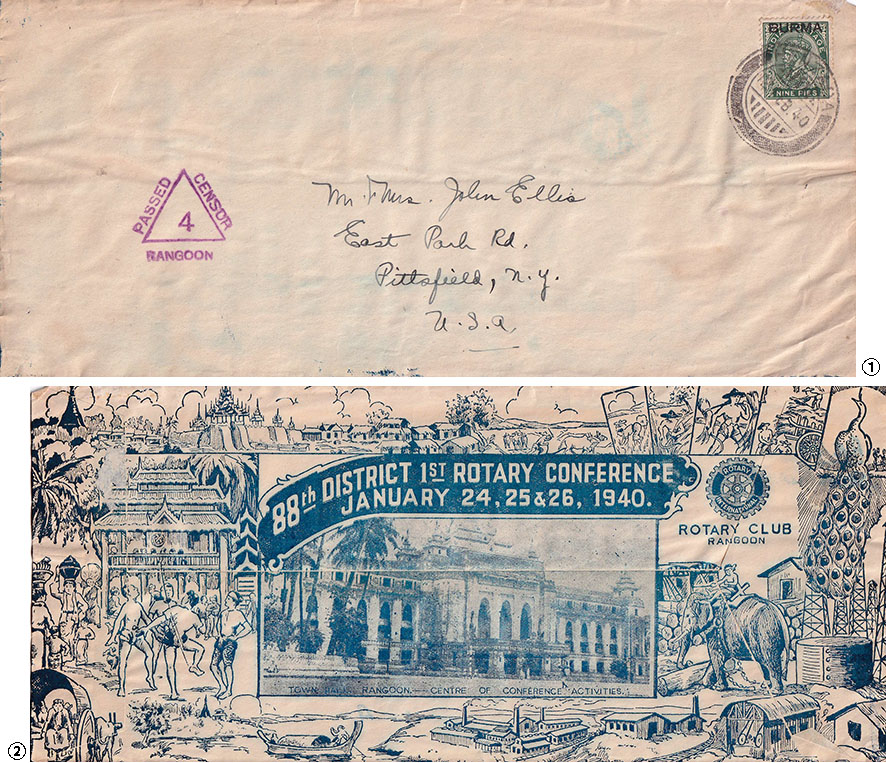 BURMA
NINE PIES
40
PASSED CENSOR
4
RANGOON
Mr. & Mrs. John Ellis
East Park Rd.
Pittsfield, N.Y.
U.S.A.
1
88th DISTRICT 1ST ROTARY CONFERENCE
JANUARY 24, 25 & 26, 1940.
ROTARY
INTERNATIONAL
ROTARY CLUB
RANGOON
TOWN HALL, RANGOON. — CENTRE OF CONFERENCE ACTIVITIES.
2